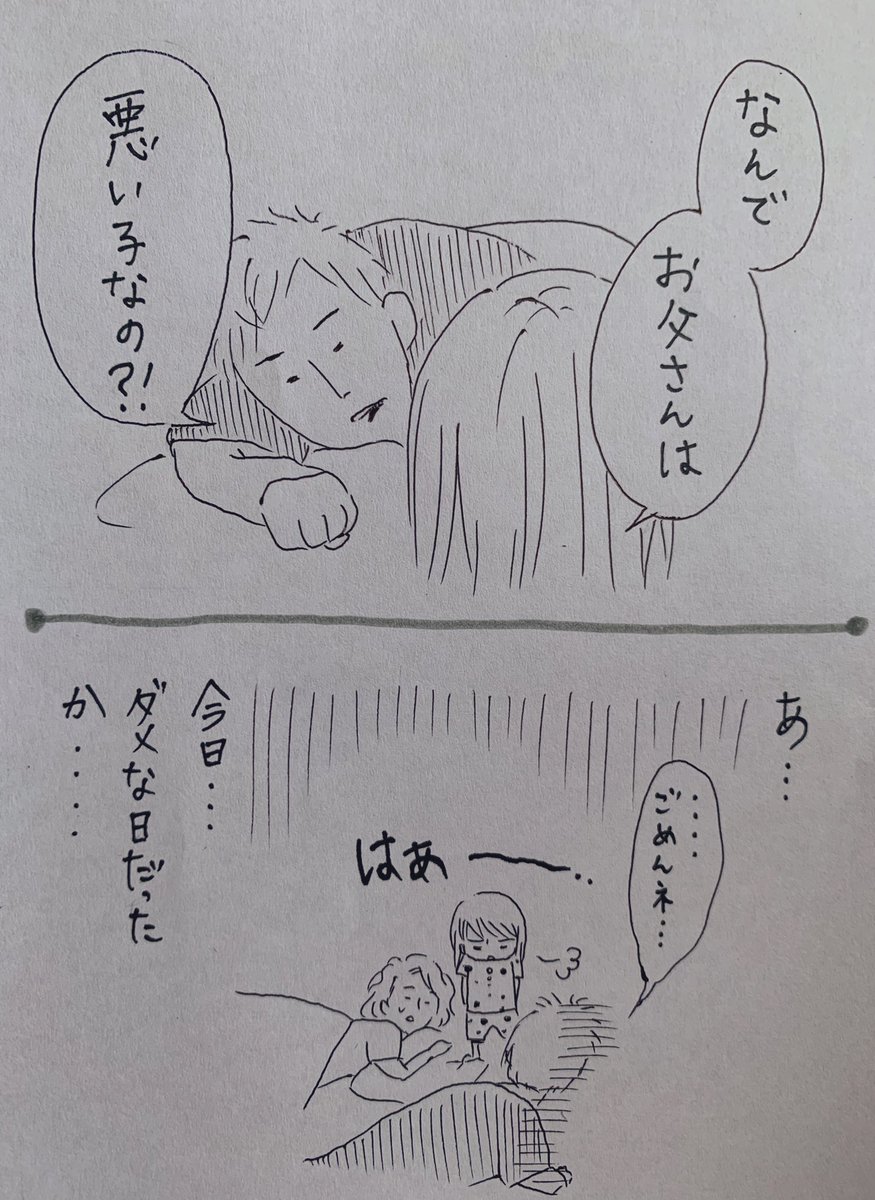 なんで
お父さんは
悪い子なの?!
あ...
‥‥
ごめんネ...
はぁー‥
今日...
ダメな日だった
か....